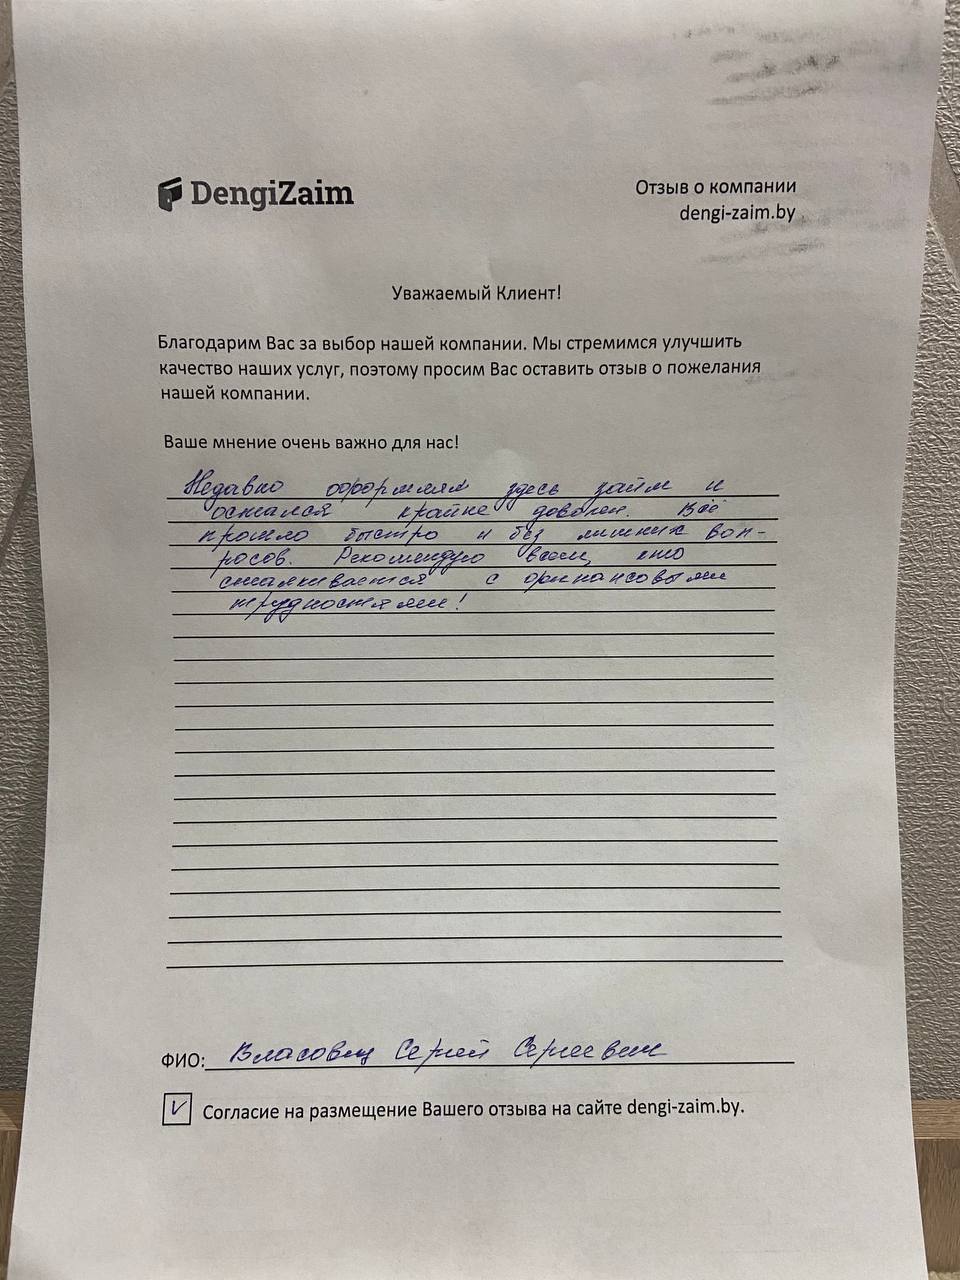 DengiZaim
Отзыв о компании
dengi-zaim.by
Уважаемый Клиент!
Благодарим Вас за выбор нашей компании. Мы стремимся улучшить
качество наших услуг, поэтому просим Вас оставить отзыв о пожелания
нашей компании.
Ваше мнение очень важно для нас!
Недавно оформлял здесь займ и
остался крайне доволен. Всё
прошло быстро и без лишних воп-
росов. Рекомендую всем, кто
сталкивается с финансовыми
трудностями!
ФИО: Власовец Сергей Сергеевич
V Согласие на размещение Вашего отзыва на сайте dengi-zaim.by.